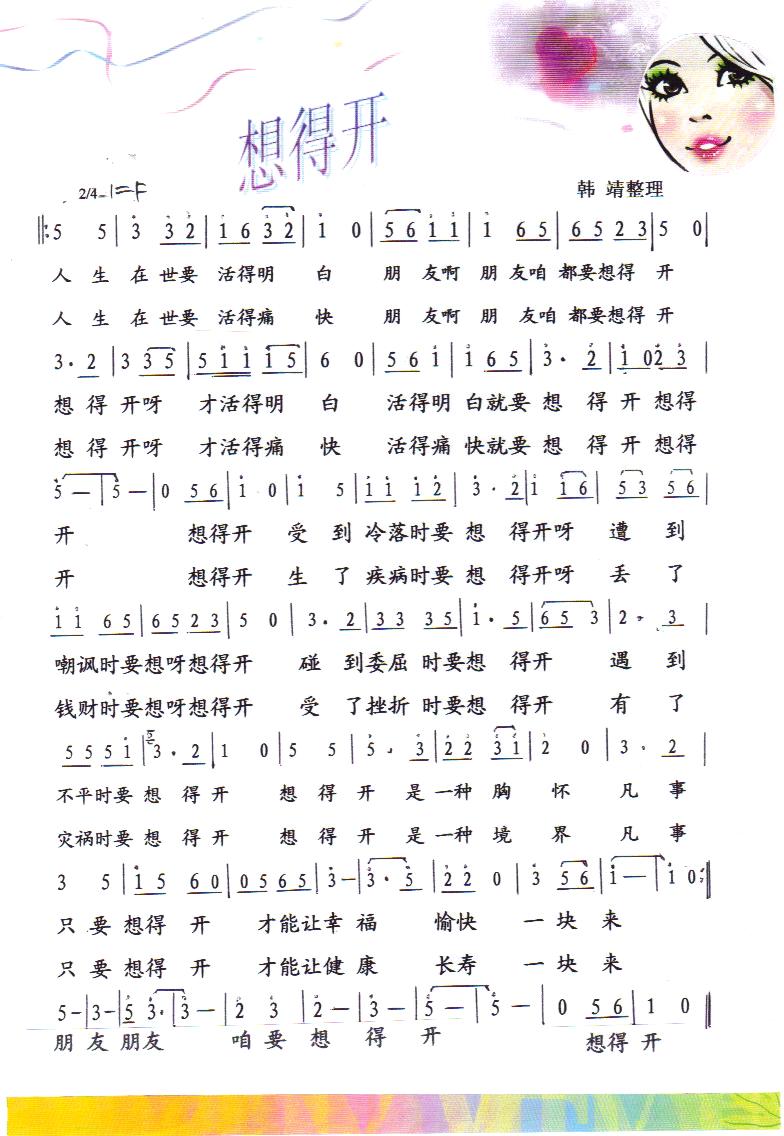 想得开
2/4 1=F
韩 靖整理
‖:5 5 | 3 3 2 | 1 6 3 2 | 1 0 | 5 6 1 1 | 1 6 5 | 6 5 2 3 | 5 0 |
人 生 在 世要 活得明 白 朋 友啊 朋 友咱 都要想得 开
人 生 在 世要 活得痛 快 朋 友啊 朋 友咱 都要想得 开
3· 2 | 3 3 5 | 5 1 1 1 5 | 6 0 | 5 6 1 | 1 6 5 | 3· 2 | 1 02 3 |
想 得 开呀 才活得明 白 活得明 白就要 想 得 开 想得
想 得 开呀 才活得痛 快 活得痛 快就要 想 得 开 想得
5 — | 5 — | 0 5 6 | 1 0 | 1 5 | 1 1 1 2 | 3· 2 | 1 1 6 | 5 3 5 6 |
开 想得开 受 到 冷落时要 想 得开呀 遭 到
开 想得开 生 了 疾病时要 想 得开呀 丢 了
1 1 6 5 | 6 5 2 3 | 5 0 | 3· 2 | 3 3 3 5 | 1· 5 | 6 5 3 | 2· 3 |
嘲讽时要想呀想得开 碰 到委屈 时要想 得开 遇 到
钱财时要想呀想得开 受 了挫折 时要想 得开 有 了
5 5 5 1 | 3· 2 | 1 0 | 5 5 | 5· 3 | 2 2 3 1 | 2 0 | 3· 2 |
不平时要 想 得 开 想 得 开 是 一种 胸 怀 凡 事
灾祸时要 想 得 开 想 得 开 是 一种 境 界 凡 事
3 5 | 1 5 6 0 | 0 5 6 5 | 3 — | 3· 5 | 2 2 0 | 3 5 6 | 1 — | 1 0 :‖
只 要 想得 开 才能让幸 福 愉快 一 块 来
只 要 想得 开 才能让健 康 长寿 一 块 来
5 — | 3 — | 5 3· | 3 — | 2 3 | 2 — | 3 — | 5 — | 5 — | 0 5 6 | 1 0 ‖
朋 友 朋友 咱 要 想 得 开 想得 开